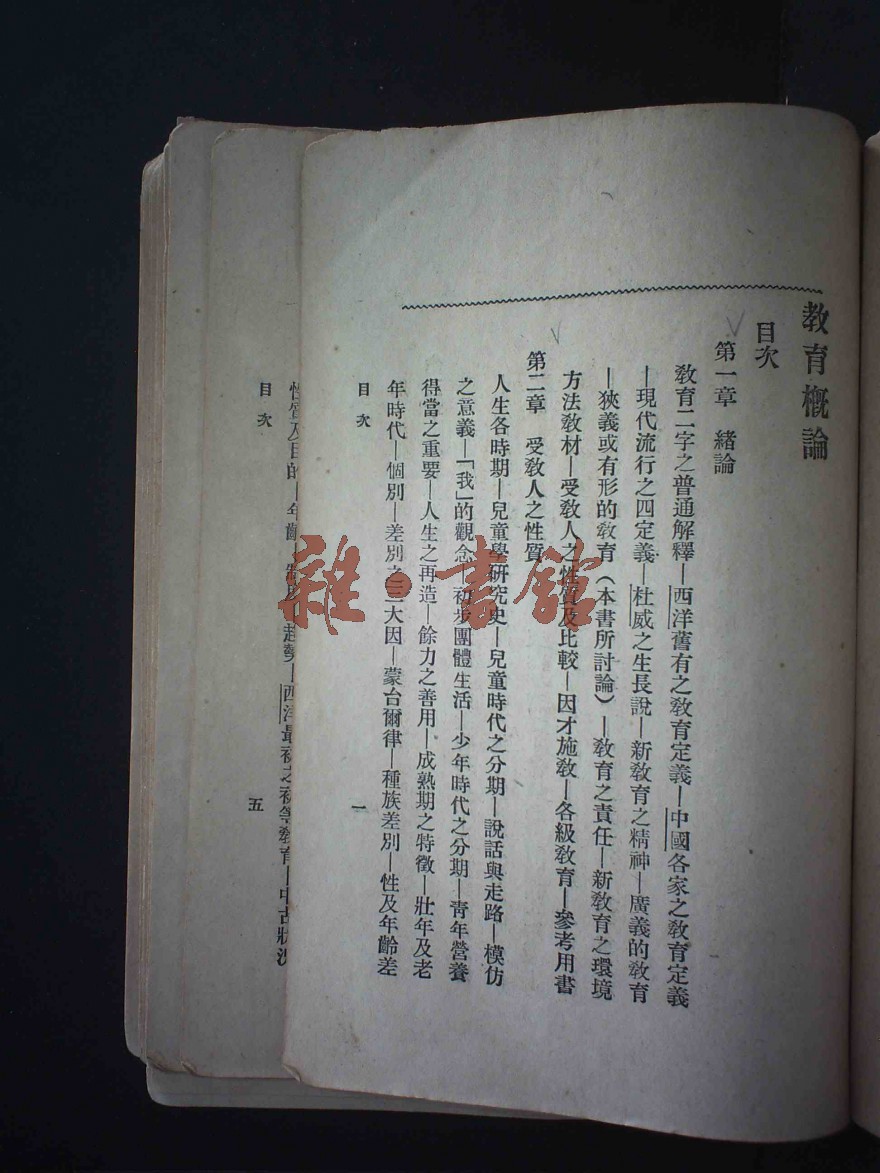 教育概論
目次
第一章　緒論
教育二字之普通解釋—西洋舊有之教育定義—中國各家之教育定義
—現代流行之四定義—杜威之生長說—新教育之精神—廣義的教育
—狹義或有形的教育（本書所討論）—教育之責任—新教育之環境
方法教材—受教人之性質及比較—因才施教—各級教育—參考用書
第二章　受教人之性質
人生各時期—兒童學研究史—兒童時代之分期—說話與走路—模仿
之意義—「我」的觀念—初步團體生活—少年時代之分期—青年營養
得當之重要—人生之再造—餘力之善用—成熟期之特徵—壯年及老
年時代—個別—差別之三大因—蒙台爾律—種族差別—性及年齡差
目次
一
性質及目的—年齡—制度—趨勢—西洋最初之初等教育—中古狀況
目次
五
雜·書館